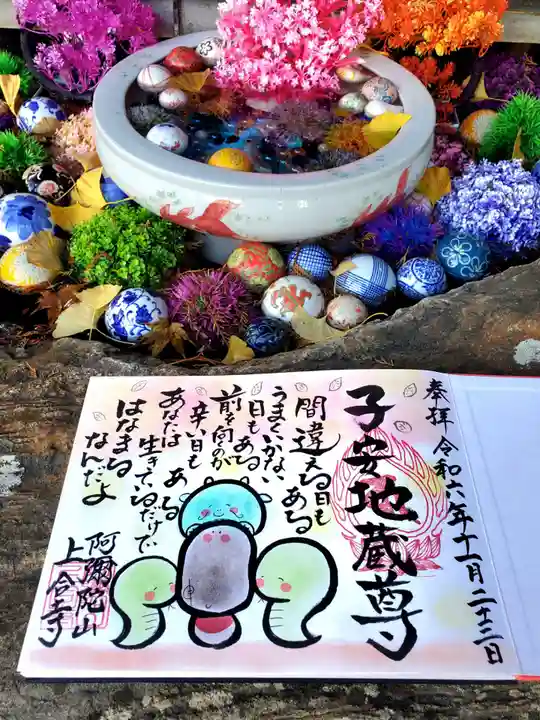 奉拝 令和六年十一月二十二日
子安地蔵尊
間違える日もある
うまくいかない
日もある
前を向のが
辛い日もある
あなたは
生きているだけで
はなまる
なんだよ
阿彌陀山
上合寺